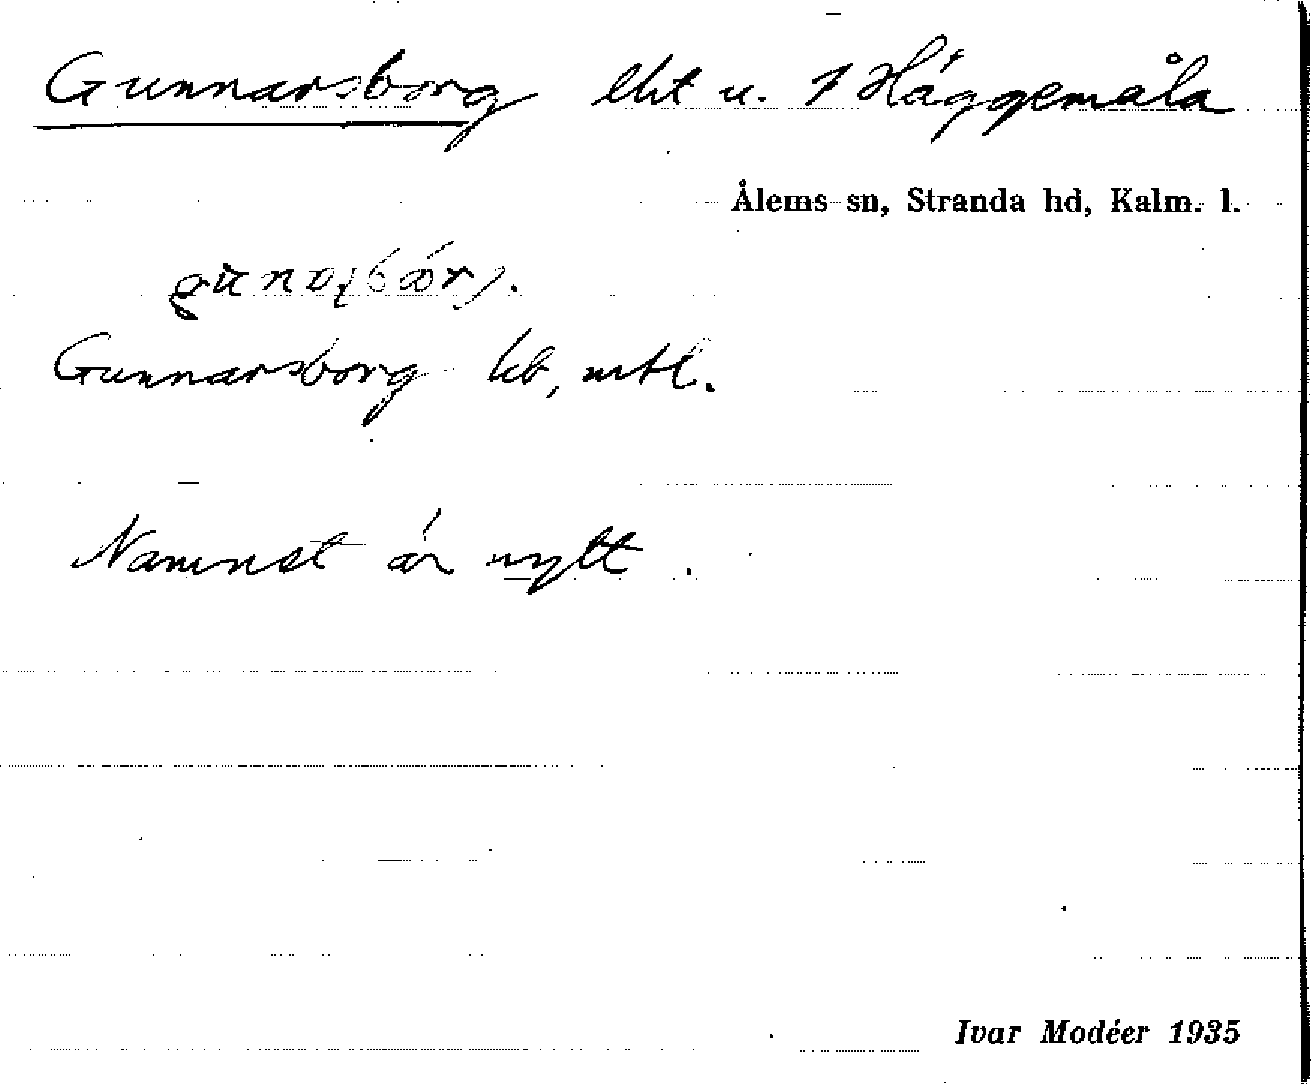 Gunnarsborg lht u. 1 Häggemåla
Ålems sn, Stranda hd, Kalm. l.
Gunnarsborg kb, mtl.
Namnet är nytt.
Ivar Modéer 1935